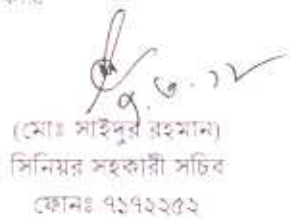 ৭.৬.১২
(মোঃ সাইদুর রহমান)
সিনিয়র সহকারী সচিব
ফোনঃ ৭১৭২২৫২